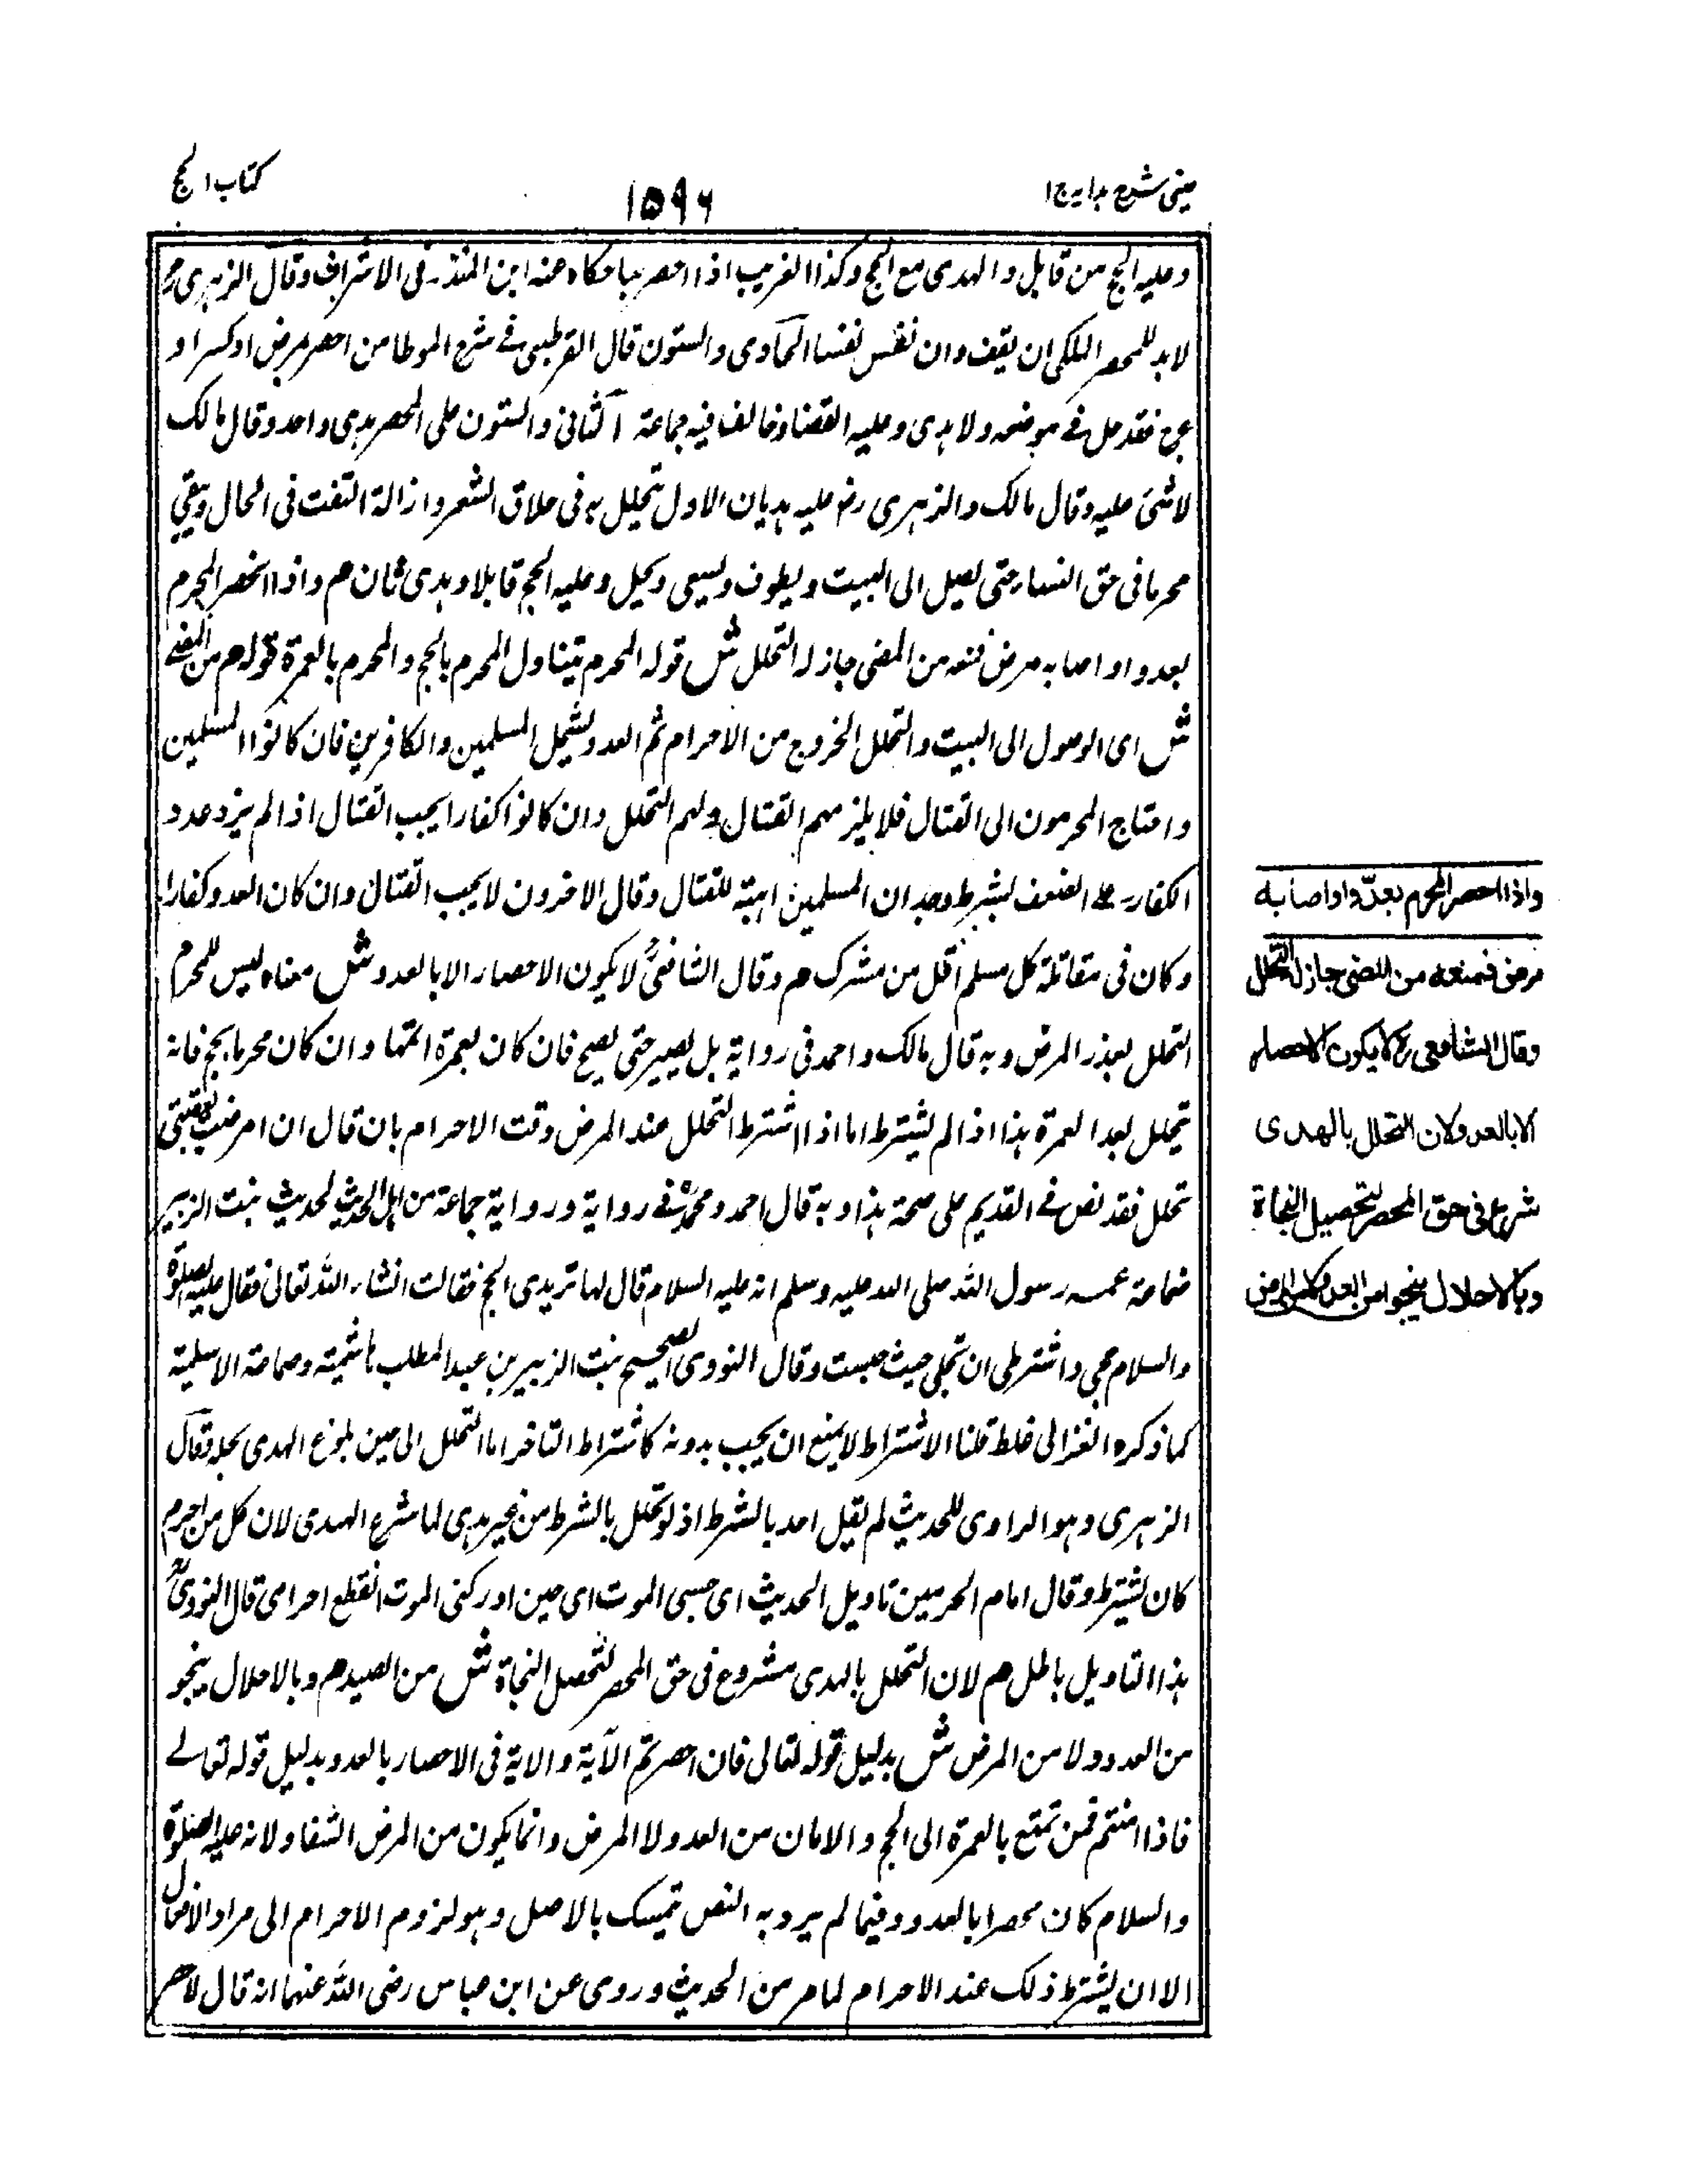 عینی شرح ہدایہ ج۱
۱۵۹۶
کتاب الحج
وعلیه الحج من قابل والهدی مع الحج وکذا الغریب اذا احصر بها حکاه عنه ابن المنذر فی الاشراف وقال الزهری رح
لابد للمحصر المکی ان یقف وان نفس نفسا الحادی والستون قال القرطبی فی شرح الموطا من احصر بمرض او کسر او
عرج فقد حل فی موضعه ولا هدی وعلیه القضاء وخالف فیه جماعة الثانی والستون علی المحصر هدی واحد وقال مالک
لاشئ علیه وقال مالک والزهری رض علیه هدیان الاول یتحلل به فی حلاق الشعر وازالة التفث فی الحال ویبقی
محرما فی حق النساء حتی یصل الی البیت ویطوف ویسعی ویحل وعلیه الحج قابلا وهدی ثان م واذا احصر المحرم
بعدو او اصابه مرض فمنعه من المضی جاز له التحلل ش قوله المحرم یتناول المحرم بالحج والمحرم بالعمرة قوله م من المضی
ش ای الوصول الی البیت والتحلل الخروج من الاحرام ثم العدو یشمل المسلمین والکافرین فان کانوا المسلمین
واحتاج المحرمون الی القتال فلا یلزمهم القتال ولهم التحلل وان کانوا کفارا یجب القتال اذا لم یزد عدد
الکفار علی الضعف بشرط وجدان المسلمین اهبة للقتال وقال الاخرون لا یجب القتال وان کان العدو کفارا
وکان فی مقاتلة کل مسلم اقل من مشرک م وقال الشافعی لا یکون الاحصار الا بالعدو ش معناه لیس للمحرم
التحلل بعذر المرض وبه قال مالک واحمد فی روایة بل یصبر حتی یصح فان کان بعمرة اتمها وان کان محرما بحج فانه
یتحلل بعد العمرة هذا اذا لم یشترط اما اذا اشترط التحلل عند المرض وقت الاحرام بان قال ان امرضت
تحلل فقد نص فی القدیم علی صحة هذا وبه قال احمد ومحمد فی روایة وروایة جماعة من اهل الحدیث لحدیث بنت الزبیر
ضباعة رسول الله صلی الله علیه وسلم انه علیه السلام قال لها تریدی الحج فقالت انشاء الله تعالی فقال علیه الصلوة
والسلام حجی واشترطی ان تحلی حیث حبست وقال النووی الصحیح بنت الزبیر بن عبد المطلب هاشمیة وضباعة الاسلمیة
کما ذکره الغزالی غلط قلنا الاشتراط لا یمنع ان یجب بدونه کاشتراط التاخر اما التحلل الی حین بلوغ الهدی محله فقال
الزهری وهو الراوی للحدیث لم یقل احد بالشرط اذ لو تحلل بالشرط من غیر هدی لما شرع الهدی لان کل من احرم
کان یشترط وقال امام الحرمین تاویل الحدیث ای حبسی الموت ای حین ادرکنی الموت انقطع احرامی قال النووی
هذا التاویل باطل م لان التحلل بالهدی مشروع فی حق المحصر لتحصل النجاة ش من الصید م وبالاحلال ینجو
من العدو ولا من المرض ش بدلیل قوله تعالی فان احصرتم الآیة والایة فی الاحصار بالعدو بدلیل قوله تعالے
فاذا امنتم فمن تمتع بالعمرة الی الحج والامان من العدو لا المرض وانما یکون من المرض الشفا ولانه علیه الصلوة
والسلام کان محصرا بالعدو وفیما لم یرد به النص تمسک بالاصل وهو لزوم الاحرام الی مراد الافعال
الا ان یشترط ذلک عند الاحرام لما مر من الحدیث وروی عن ابن عباس رضی الله عنهما انه قال لا حصر
واذا احصر المحرم بعدو او اصابه
مرض فمنعه من المضی جاز له التحلل
وقال الشافعی رح لا یکون الاحصار
الا بالعدو ولان التحلل بالهدی
شرع فی حق المحصر لتحصیل النجاة
وبالاحلال ینجو من العدو لا من المرض